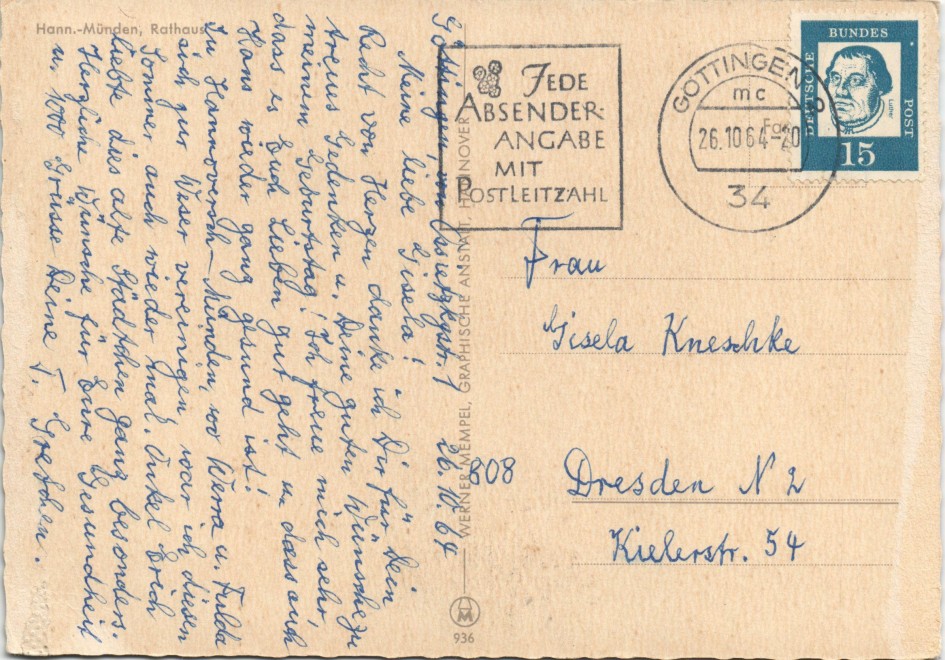 Hann.-Münden, Rathaus
Göttingen, von Ossietzkystr. 1 26.10.64
Meine liebe Gisela!
Recht von Herzen danke ich Dir für Dein
treues Gedenken u. Deine guten Wünsche zu
meinem Geburtstag! Ich freue mich sehr,
dass es Euch Lieben gut geht u. dass auch
Hans wieder ganz gesund ist!
In Hannoversch-Münden, wo Werra u. Fulda
sich zur Weser vereinigen war ich diesen
Sommer auch wieder mal. Onkel Erich
liebte dies alte Städtchen ganz besonders.
Herzliche Wünsche für Eure Gesundheit
u. 1000 Grüsse Deine T. Gretchen.
WERNER MEMPEL, GRAPHISCHE ANSTALT, HANNOVER
M
936
JEDE
ABSENDER-
ANGABE
MIT
POSTLEITZAHL
GÖTTINGEN 2
mc
26.10.64-20
34
DEUTSCHE
BUNDES
POST
Luther
15
Frau
Gisela Kneschke
808 Dresden N 2
Kielerstr. 54